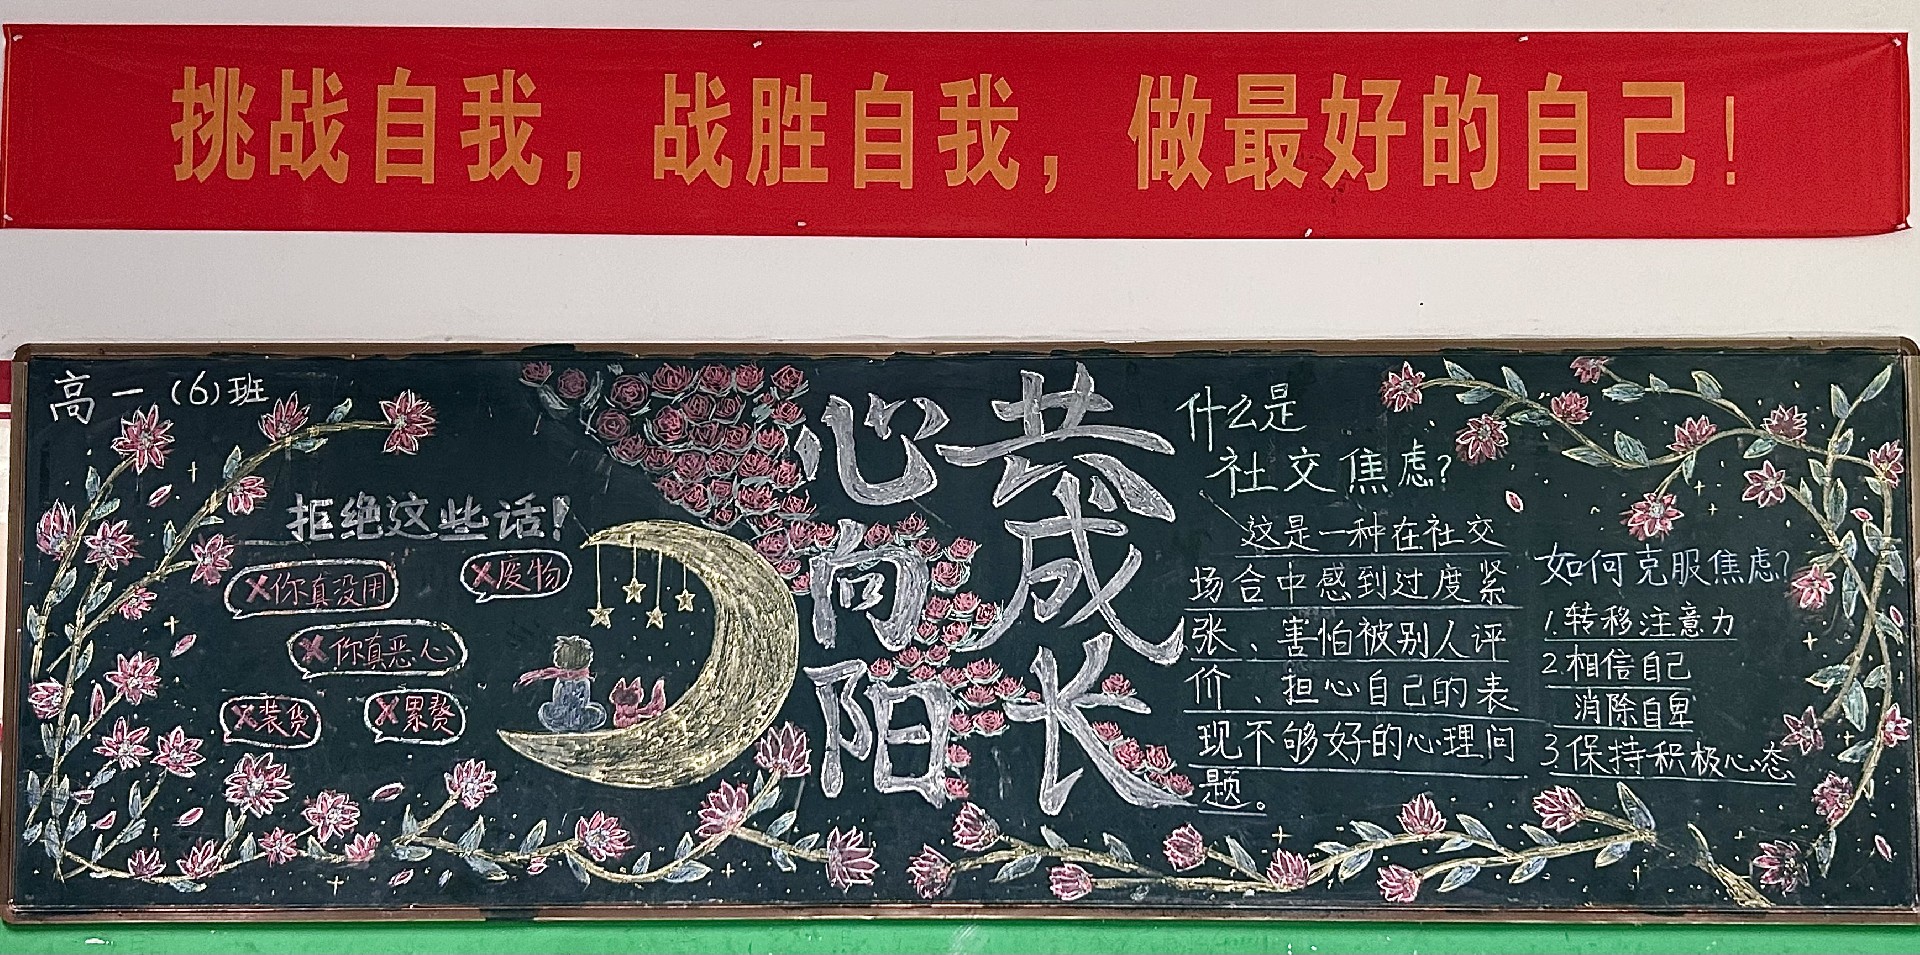 挑战自我，战胜自我，做最好的自己！
高一（6）班
拒绝这些话！
×你真没用
×废物
×你真恶心
×装货
×累赘
心向阳
共成长
什么是
社交焦虑？
这是一种在社交
场合中感到过度紧
张、害怕被别人评
价、担心自己的表
现不够好的心理问
题。
如何克服焦虑？
1.转移注意力
2.相信自己
消除自卑
3.保持积极心态